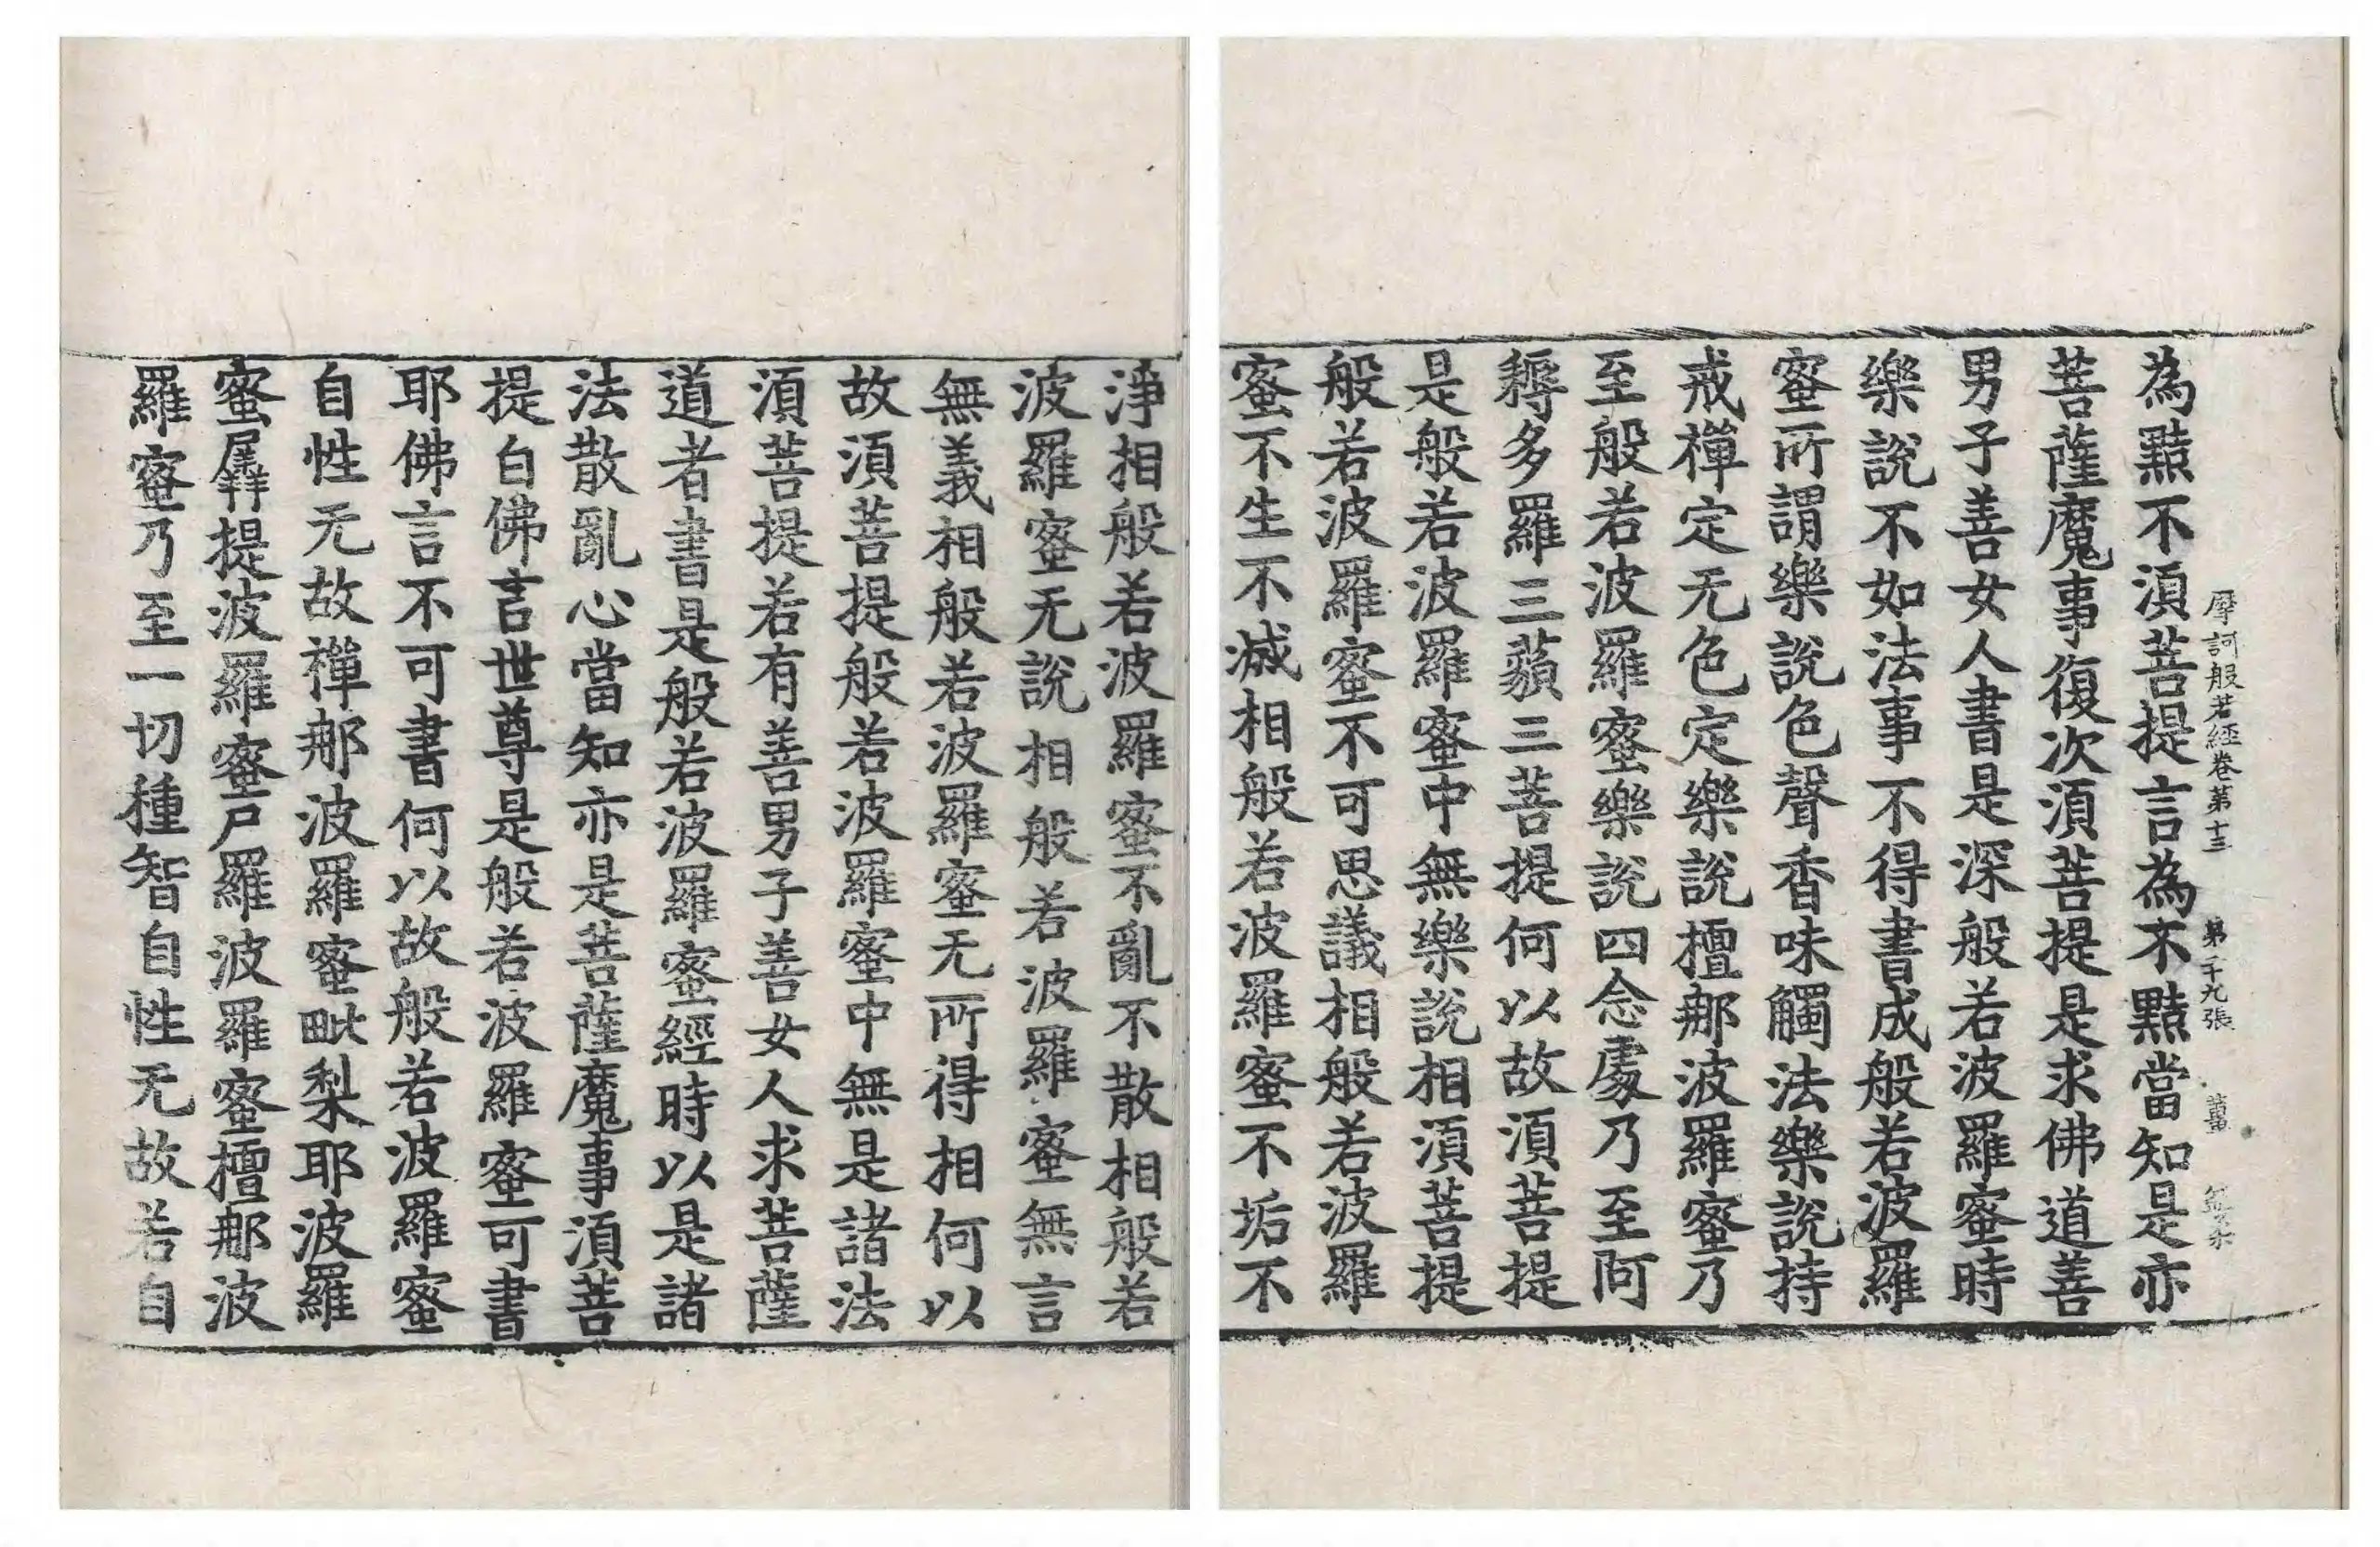 摩訶般若經卷第十三　第二十九張　薑
為黠不須菩提言為不黠當知是亦
菩薩魔事復次須菩提是求佛道善
男子善女人書是深般若波羅蜜時
樂說不如法事不得書成般若波羅
蜜所謂樂說色聲香味觸法樂說持
戒禪定无色定樂說檀那波羅蜜乃
至般若波羅蜜樂說四念處乃至阿
耨多羅三藐三菩提何以故須菩提
是般若波羅蜜中無樂說相須菩提
般若波羅蜜不可思議相般若波羅
蜜不生不滅相般若波羅蜜不垢不
淨相般若波羅蜜不亂不散相般若
波羅蜜无說相般若波羅蜜無言
無義相般若波羅蜜无所得相何以
故須菩提般若波羅蜜中無是諸法
須菩提若有善男子善女人求菩薩
道者書是般若波羅蜜經時以是諸
法散亂心當知亦是菩薩魔事須菩
提白佛言世尊是般若波羅蜜可書
耶佛言不可書何以故般若波羅蜜
自性无故禪那波羅蜜毗梨耶波羅
蜜羼提波羅蜜尸羅波羅蜜檀那波
羅蜜乃至一切種智自性无故若自